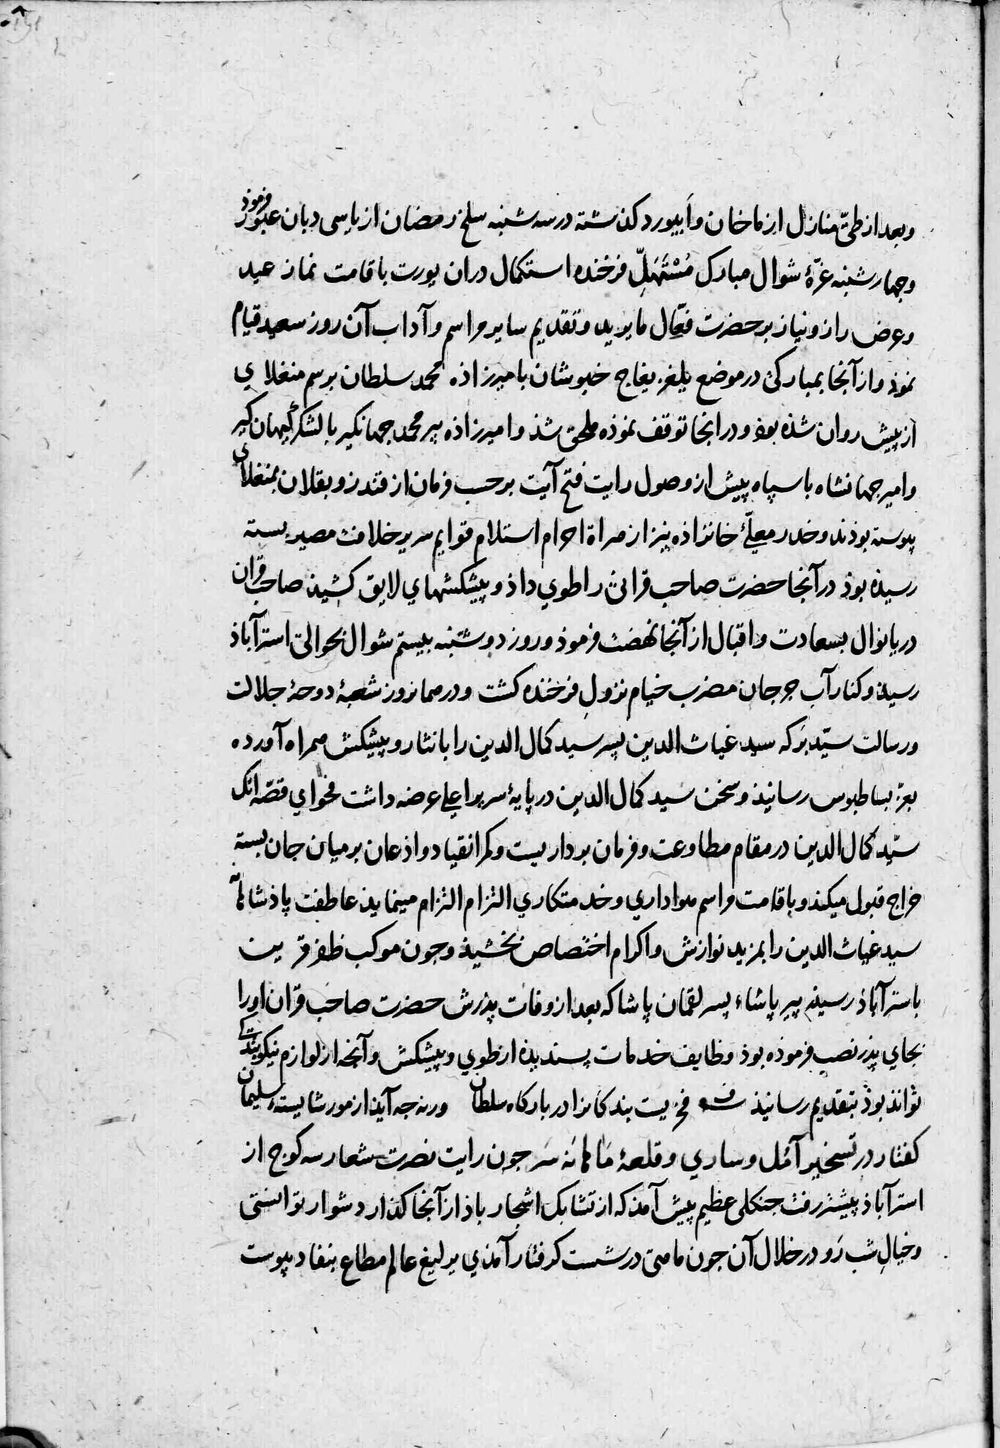 وبعد از طیّ منازل از ماخان و ابیورد کذشته در سه شنبه سلخ رمضان از یاسی دبان عبور فرموذ
وجهارشنبه غرّهٔ شوال مبارک مُسْتَهَلّ فرخنده استکمال دران یورت باقامت نماز عید
وعرض راز ونیاز بر حضرت فعّال ما یرید وتقدیم سایر مراسم وآداب آن روز سعید قیام
نموذ واز آنجا بمبارکی در موضع یلغز یغاج خبوشان بامیرزاده محمد سلطان برسم منغلای
از پیش روان شذه بوذ ودرانجا توقف نموذه ملحق شذ وامیرزاذه پیر محمد جهانکیر با لشکر کیهان کیر
وامیر جهانشاه با سپاه پیش از وصول رایت فتح آیت بر حسب فرمان از قندز وبقلان بمنغلای
پیوسته بوذند وخدر معلّیٰ خانزاذه نیز از هراة احرام استلام قوایم سریر خلافت مصیر بسته
رسیذه بوذ درآنجا حضرت صاحب قرانی را طوی داذ وپیشکشهای لایق کشیذ صاحب قران
دریا نوال بسعادت واقبال از آنجا نهضت فرموذ وروز دوشنبه بیستم شوال بحوالی استرآباذ
رسیذ وکنار آب جرجان مضرب خیام نزولِ فرخنده کشت ودر همانروز شعبهٔ دوحهٔ جلالت
ورسالت سیّد برَکه سید غیاث الدین پسر سید کمال الدین را با نثار وپیشکش همراه آورده
بعز بساطبوس رسانیذ وسخن سَید کمال الدین در پایهٔ سریر اعلی عرضه داشت فحوای قصّه انک
سیّد کمال الدین در مقام مطاوعت وفرمان برداریست وکمر انقیاد واذعان بر میان جان بسته
خراج قبول میکند وباقامت مراسم هواداری وخدمتکاری التزام التزام مینماید عاطفت پاذشاهانه
سید غیاث الدین را بمزید نوازش واکرام اختصاص بخشیذ وجون موکب ظفر قرین
باسترآباذ رسیذ پیر پاشاء پسر لقمان پاشا که بعد از وفات پذرش حضرت صاحب قران اورا
بجای پذر نصب فرموذه بوذ وظایف خدمات پسندیذه از طوی وپیشکش وآنجه از لوازم نیکو بندکی
تواند بوذ بتقدیم رسانیذ فخریست بندکانرا در بارکاه سلطان ورنه جه آیذ از مور شایستهٔ سلیمان
کفتار در تسخیر آمُل وساری وقلعهٔ مَاهانه سَر جون رایت نصرت شعار سه کوج از
استرآباذ پیشتر رفت جنکلی عظیم پیش آمذ که از تشابک اشجار باذ از آنجا کذار دشوار توانستی
وخیالِ شب رَو در خلال آن جون ماهی در شست کرفتار آمذی یرلیغ عالم مطاع بنفاذ پیوست